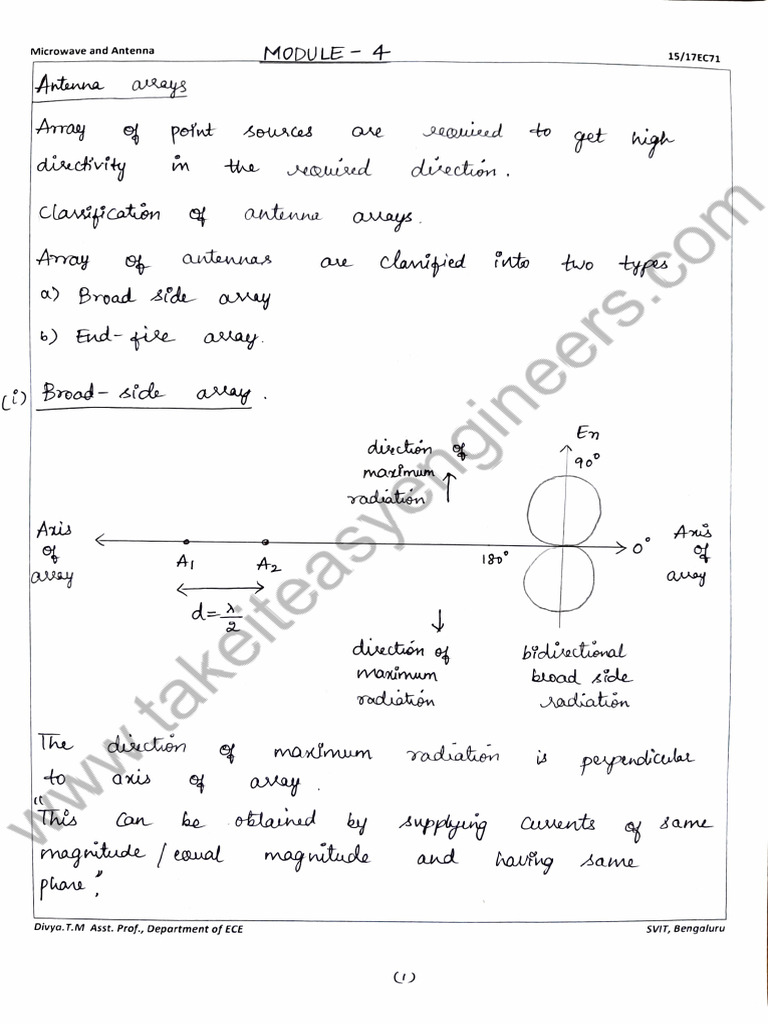 Microwave and Antenna
MODULE - 4
15/17EC71
Antenna arrays
Array of point sources are required to get high
directivity in the required direction.
Classification of antenna arrays.
Array of antennas are classified into two types
a) Broad side array
b) End-fire array.
(i) Broad-side array.
direction of
maximum
radiation
En
90°
Axis
of
array
A1
A2
180°
0°
Axis
of
array
d=λ/2
direction of
maximum
radiation
bidirectional
broad side
radiation
The direction of maximum radiation is perpendicular
to axis of array.
"This can be obtained by supplying currents of same
magnitude/equal magnitude and having same
phase".
Divya.T.M Asst. Prof., Department of ECE
SVIT, Bengaluru
(1)
www.takeiteasyengineers.com